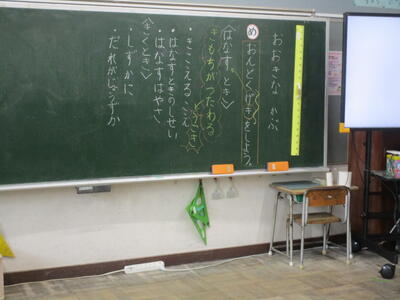 おおきな かぶ
め おんどくげきをしよう。
〈はなすとき〉
きもちがつたわる
・きこえるこえ
・はなすときのしせい
・はなすはやさ
〈きくとき〉
・しずかに
・だれがじょうずか